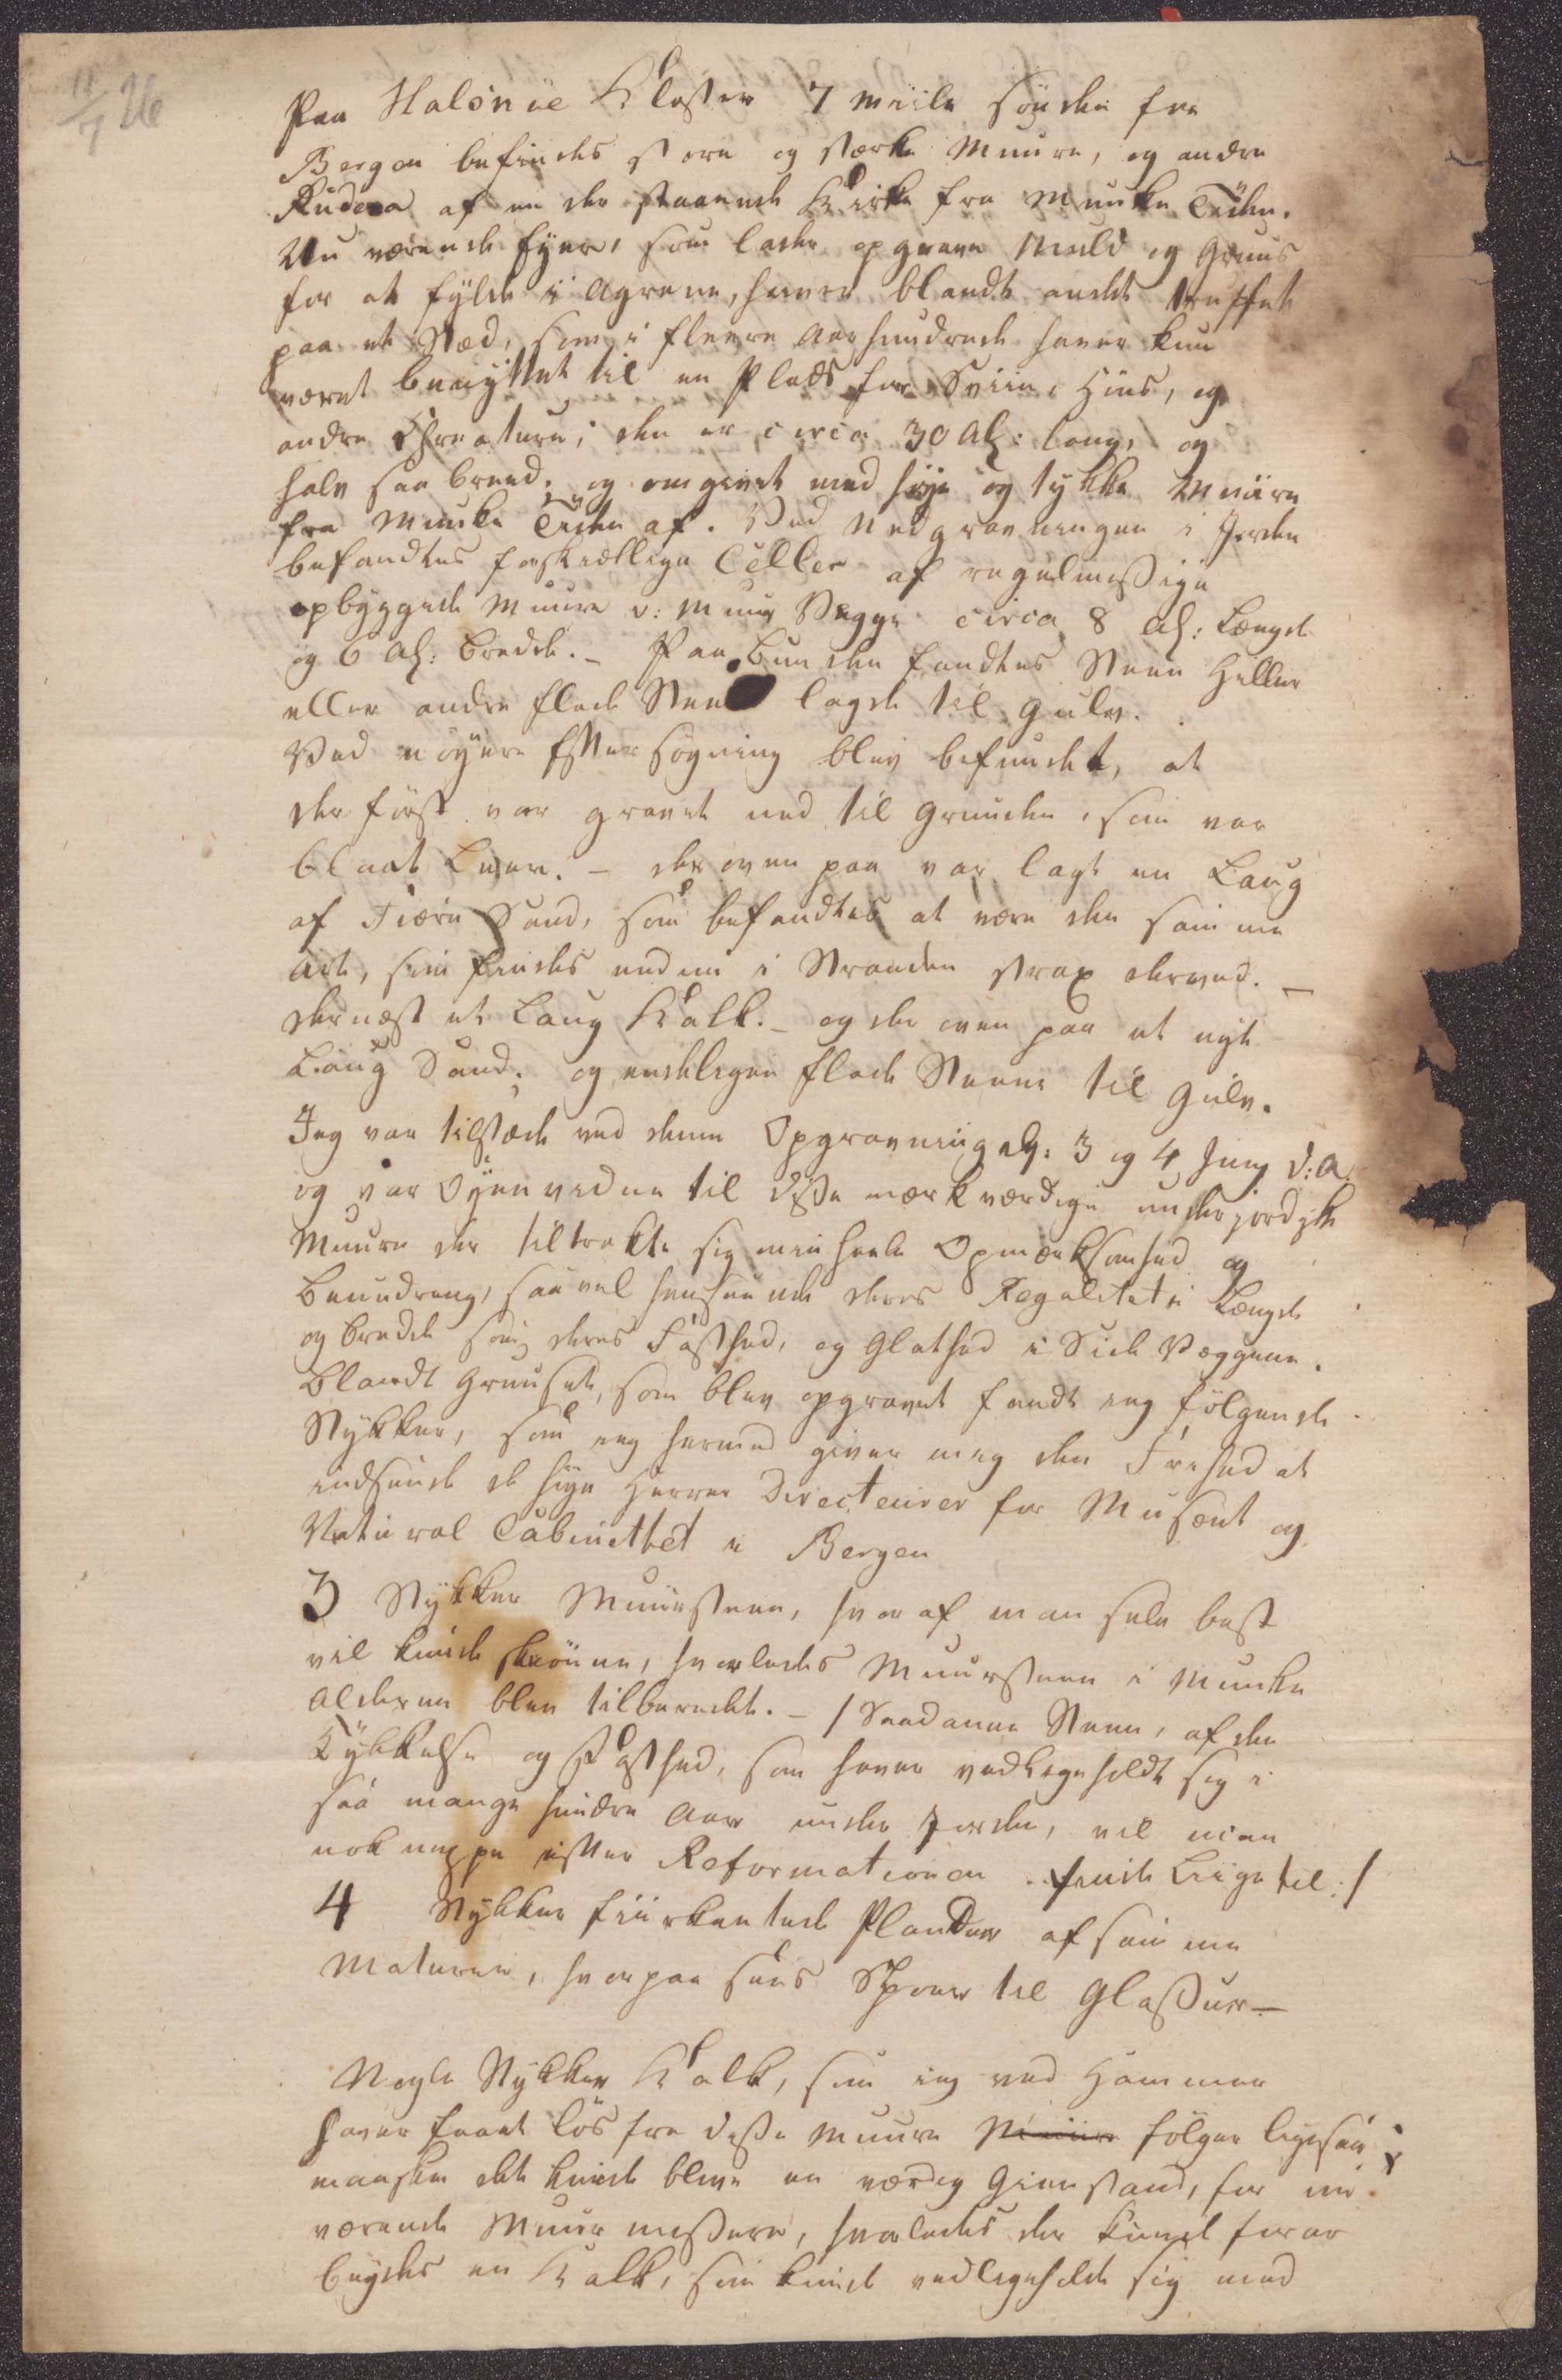 11/7 26
Paa Halsnöe Kloster 7 Miile sönden fra
Bergen befindes store og stærke Muure, og andre
Rudera af en der staaende Kirke fra Munke Tiden.
Nu værende Eyere, som lader opgrave Muld og Gruus
for at fylde i Agrene, haver blandt andet truffet
paa et Stæd, som i fleere Aarhundrede haver kun
været benyttet til en Plads for Sviin, Höns, og
andre Creature; den er circa 30 Al: lang, og
halv saa breed. og omgivet med höje og tykke Muure
fra Munke Tiden af. Ved Nedgravningen i Jorden
befandtes forskiællige Celler af regulmessige
opbyggede Muure o: Muur Vegge circa 8 Al: Længde
og 6 Al: Bredde. – Paa Bunden fandtes Steen Heller
eller andre flade Stene lagde til Gulv.
Ved nöyere Eftersögning blev befundet, at
der först var gravet ned til Grunden, som var
blaat Leer. – der oven paa var lagt en Laug
af Fiære Sand, som befandtes at være den samme
Art, som findes neden i Stranden strax derved. –
dernæst et Laug Kalk. – og der oven paa et nyt
Laug Sand. og endeligen flade Steene til Gulv.
Jeg var tilstæde ved denne Opgravning d: 3 og 4 Juny d: A.
og var Öyenvidne til disse mærkværdige underjordiske
Muure der tiltrakte sig min heele Opmærksomhed og
Beundring, saavel henseende deres Regulitet i Længde
og bredde som deres Fasthed, og Glathed i Side Væggene.
Blandt Gruuset, som blev opgravet fandt jeg fölgende
Stykker, som jeg hermed giver mig den Frihed at
indsende de höye Herrer Directeurer for Museet og
Natural Cabinettet i Bergen
3 Stykker Muursteen, hvoraf man selv best
vil kunde skiönne, hvorledes Muursteen i Munke
Alderen blev tilberedet. – / Saadanne Steene, af den
Tykkelse og Fasthed, som haver vedligeholdt sig i
saa mange hundre Aar under Jorden, vil man
nok neppe efter Reformationen finde Liige til: /
4 Stykker fiirkantede Plander af samme
Materie, hvorpaa sees Spoer til Glassur –
Nogle Stykker Kalk, som jeg ved Hammer
haver faaet lös fra disse Muure Muure fölger ligesaa,
maaskee det kunde blive en værdig Gienstand, for nu
værende Muur mestere, hvorledes der kunde forar
beydes en Kalk, som kunde vedligeholde sig med